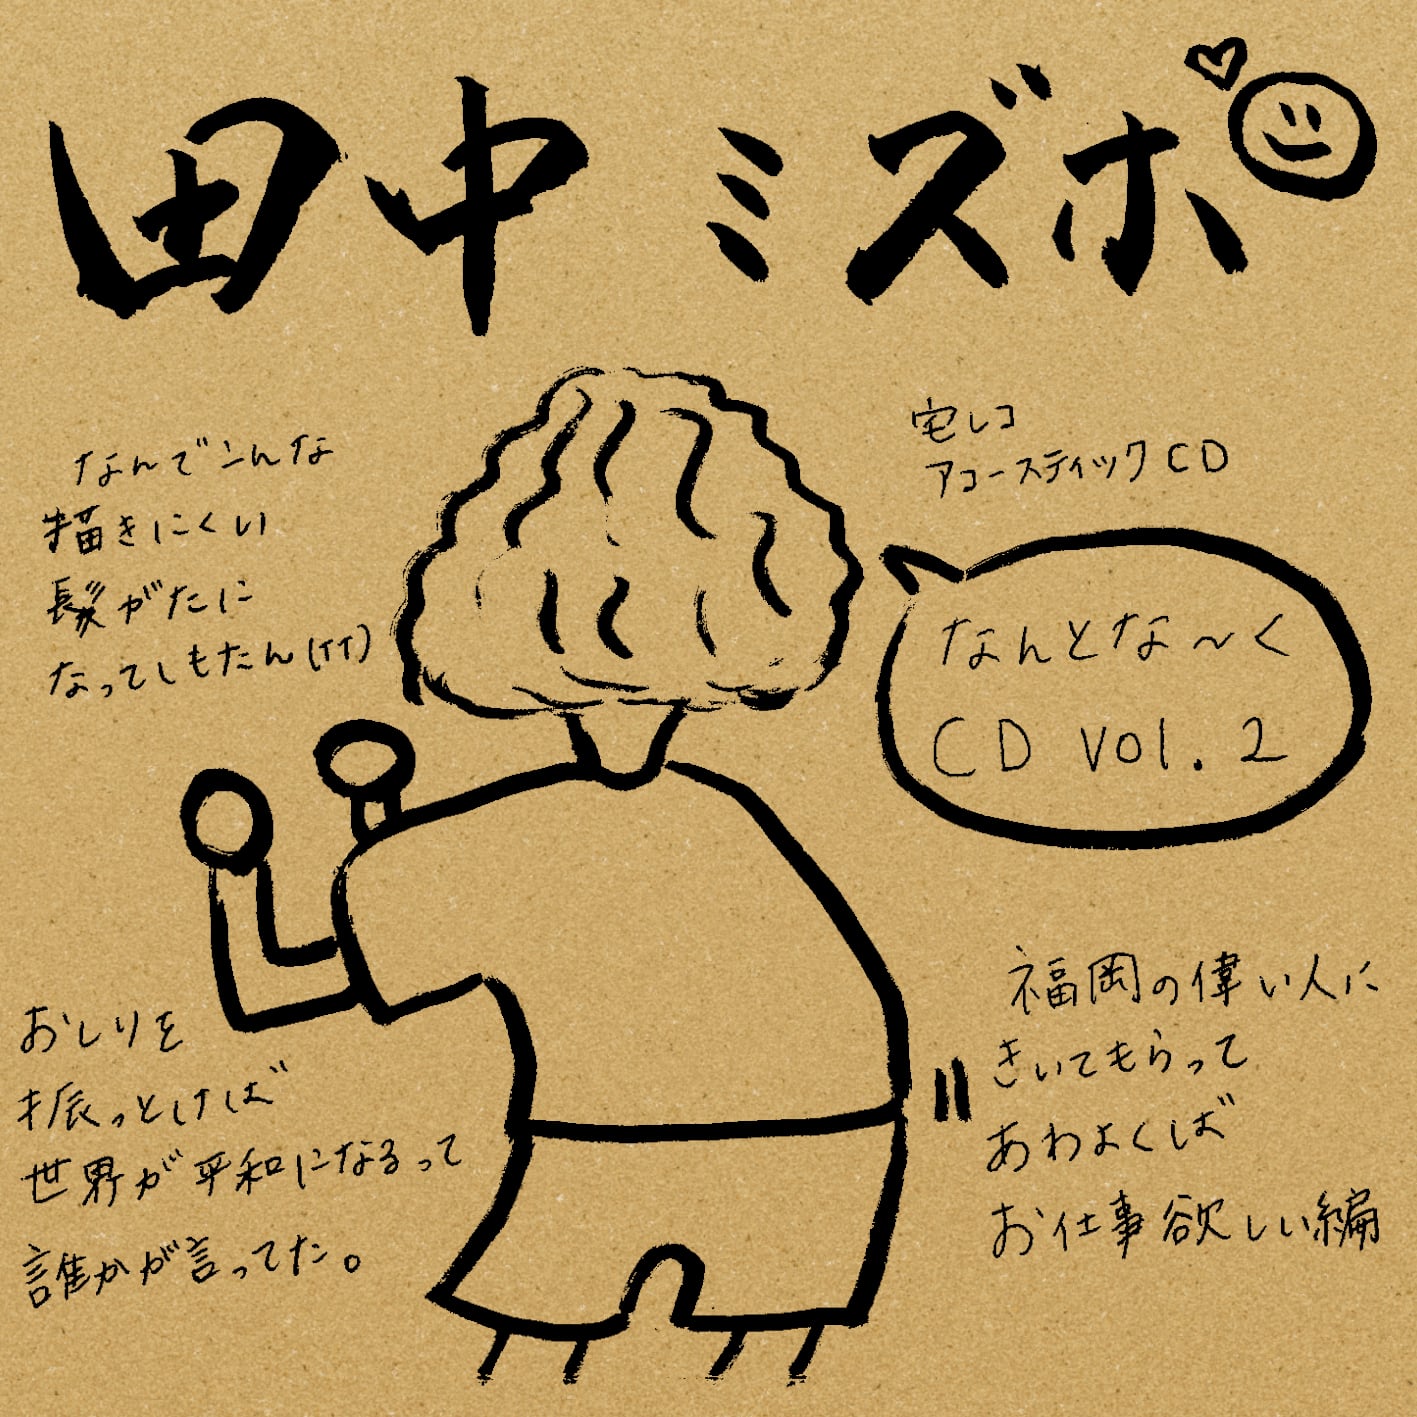 田中ミズホ
なんでこんな
描きにくい
髪がたに
なってしもたん(TT)
宅レコ
アコースティックCD
なんとな〜く
CD vol.2
おしりを
振っとけば
世界が平和になるって
誰かが言ってた。
福岡の偉い人に
きいてもらって
あわよくば
お仕事欲しい編